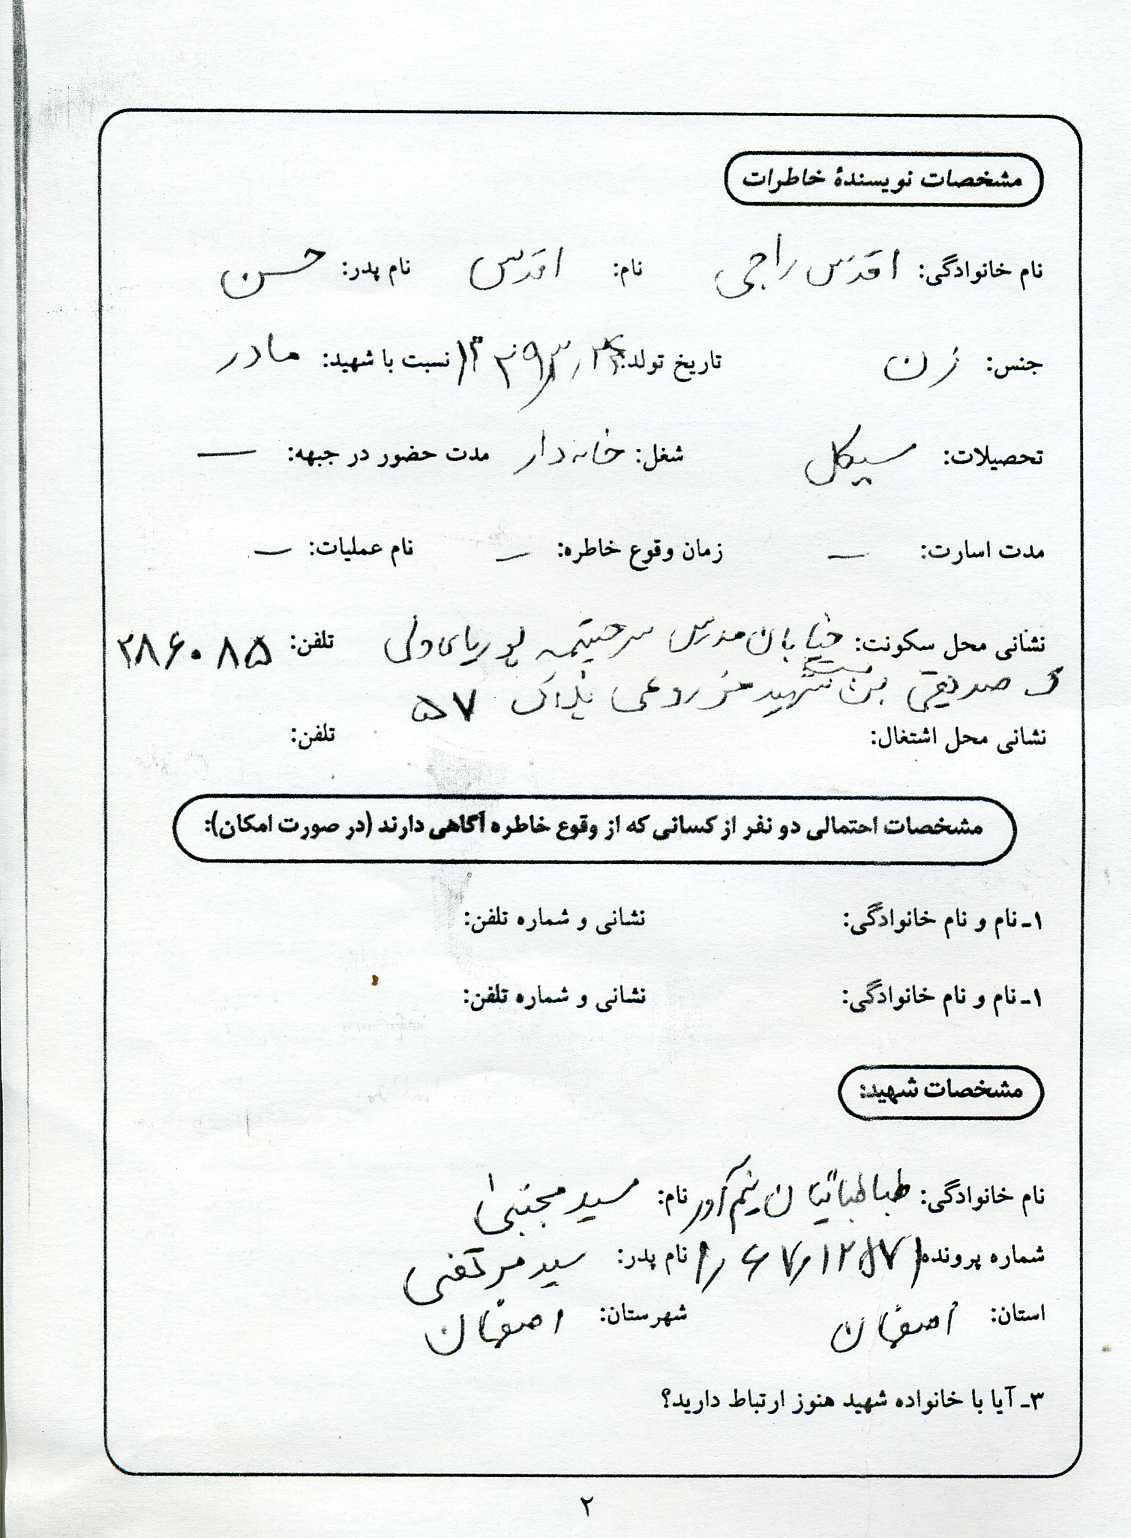 مشخصات نویسندهٔ خاطرات
نام خانوادگی: اقدس راجی نام: اقدس نام پدر: حسن
جنس: زن تاریخ تولد: نسبت با شهید: مادر
تحصیلات: سیکل شغل: خانه دار مدت حضور در جبهه: —
مدت اسارت: — زمان وقوع خاطره: — نام عملیات: —
نشانی محل سکونت: خیابان مدرس سرچشمه پوریای ولی تلفن: ۲۸۶۰۸۵
صدیقی بن شهید مزروعی پلاک ۵۷
نشانی محل اشتغال: تلفن:
مشخصات احتمالی دو نفر از کسانی که از وقوع خاطره آگاهی دارند (در صورت امکان):
۱ـ نام و نام خانوادگی: نشانی و شماره تلفن:
۱ـ نام و نام خانوادگی: نشانی و شماره تلفن:
مشخصات شهید:
نام خانوادگی: طباطبائیان نیم آور نام: سید مجتبی
شماره پرونده نام پدر: سید مرتضی
استان: اصفهان شهرستان: اصفهان
۳ـ آیا با خانواده شهید هنوز ارتباط دارید؟
۲